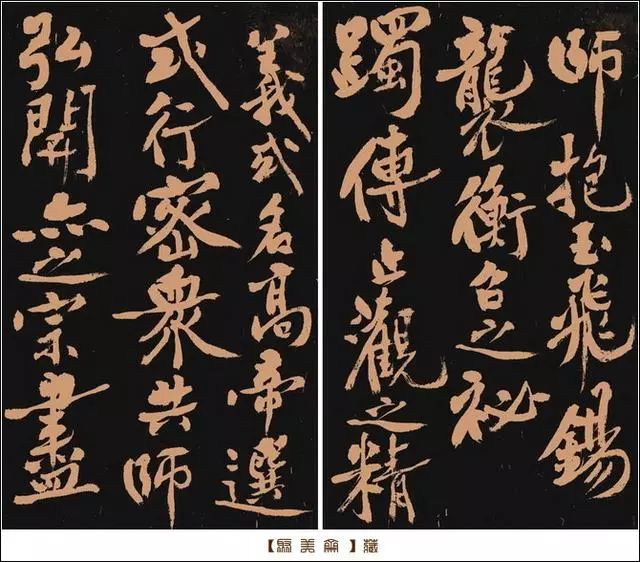 師抱玉飛錫
襲衡台之祕
躅傳止觀之精
義或名高帝選
或行密衆共師
弘開示之宗盡
美 藏